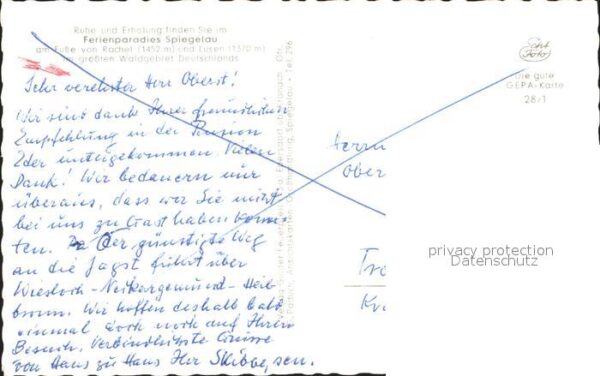 Ruhe und Erholung finden Sie im
Ferienparadies Spiegelau
am Fuße von Rachel (1452 m) und Lusen (1370 m)
im größten Waldgebiet Deutschlands
Sehr verehrter Herr Oberst!
Wir sind dank Ihrer freundlichen
Empfehlung in der Pension
Eder untergekommen. Vielen
Dank! Wir bedauern nur
überaus, dass wir Sie nicht
bei uns zu Gast haben konn-
ten. Der günstigste Weg
an die Jagst führt über
Wiesloch-Neckargemünd-Heil-
bronn. Wir hoffen deshalb bald
einmal doch noch auf Ihren
Besuch. Verbindlichste Grüsse
von Haus zu Haus Ihr Skibbe, sen.
Echt
Foto
Die gute
GEPA-Karte
28/1
Herrn
Ober
privacy protection
Datenschutz